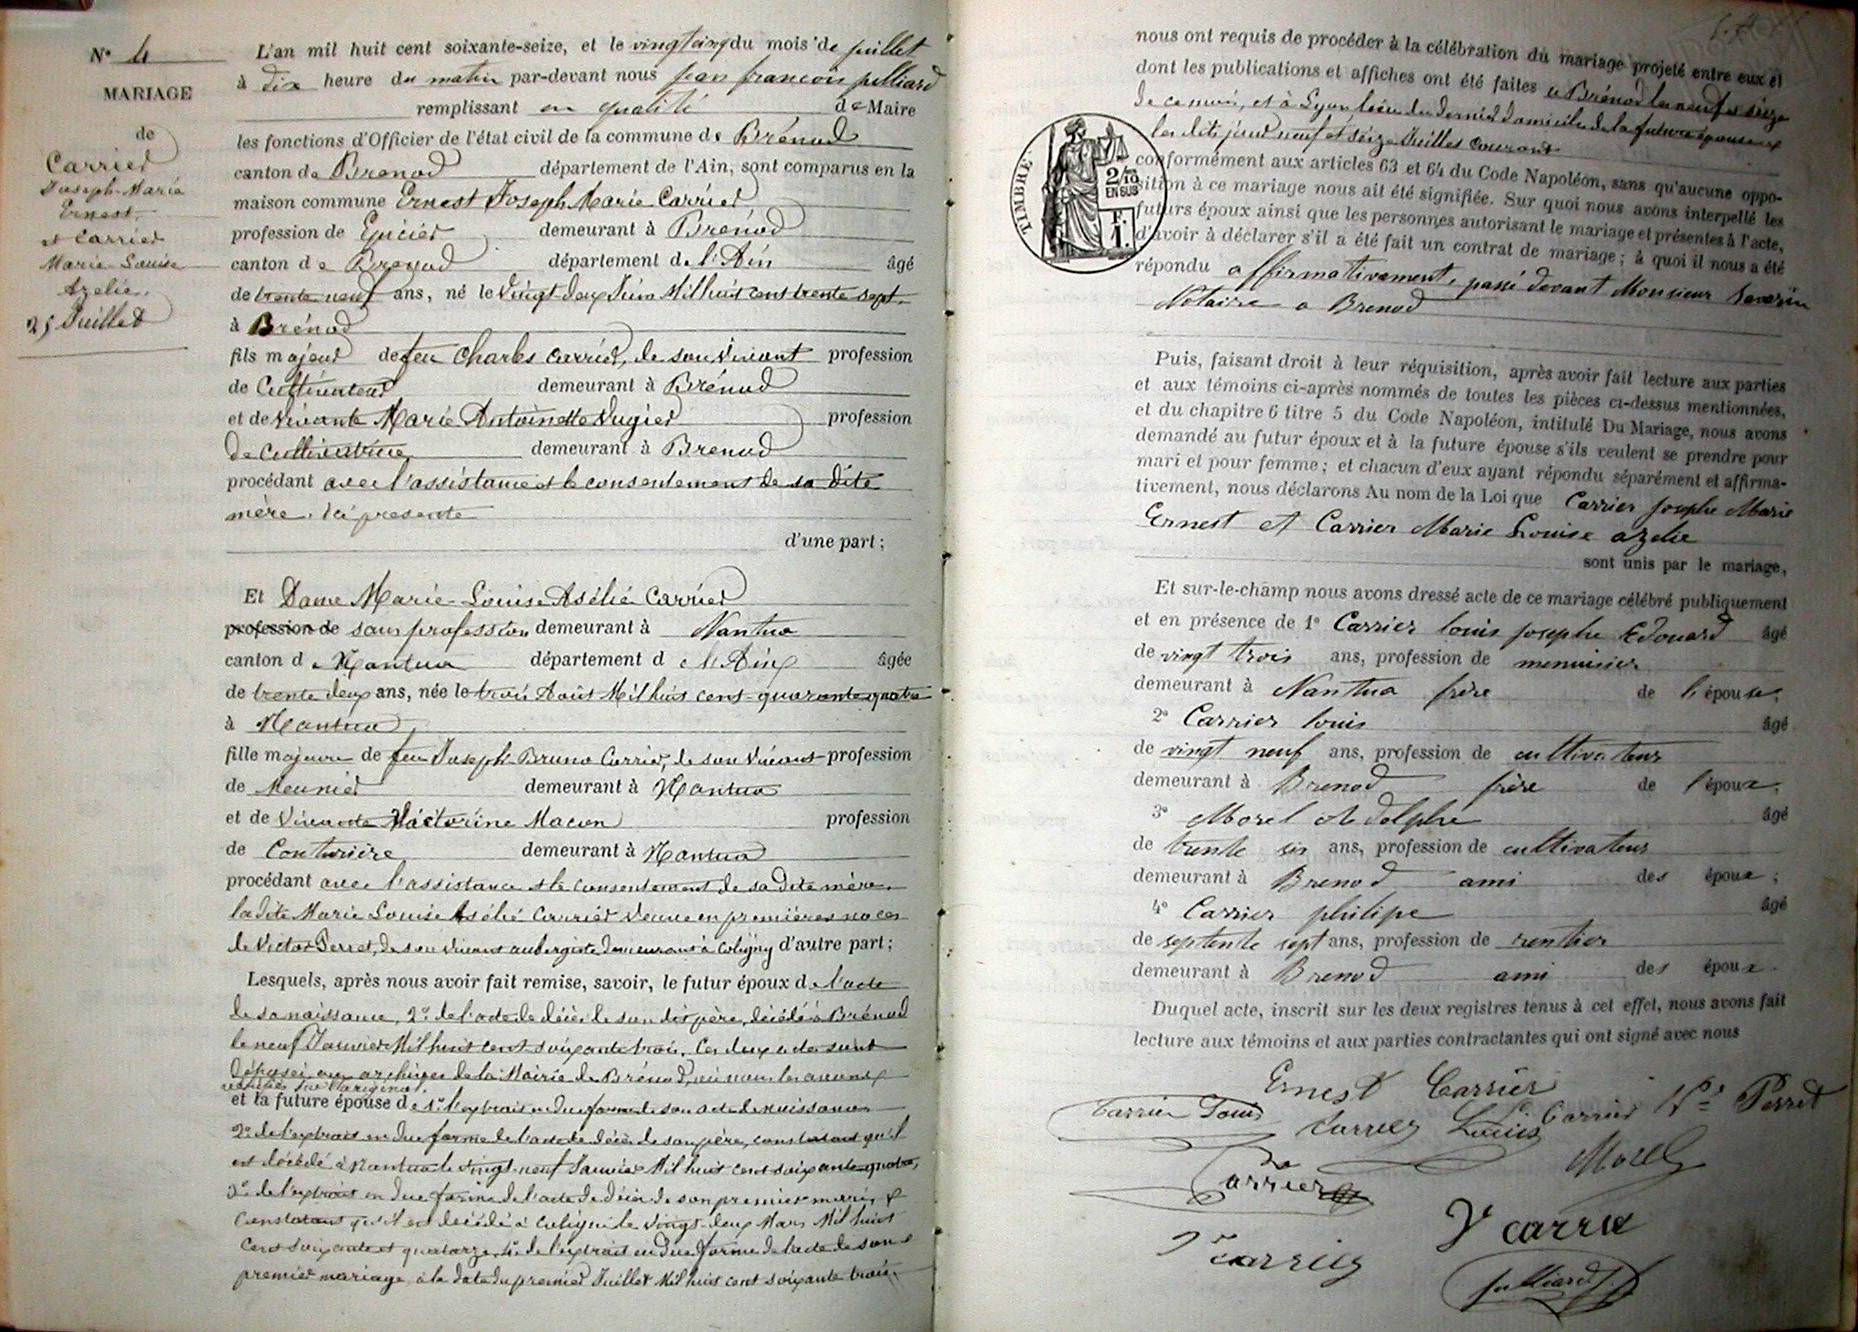 N° 4
MARIAGE
de
Carrier
Joseph-Marie
Ernest,
et Carrier
Marie Louise
Azélie.
25 Juillet
L'an mil huit cent soixante-seize, et le vingt cinq du mois de juillet
à dix heure du matin par-devant nous jean françois julliard
remplissant en qualité de Maire
les fonctions d'Officier de l'état civil de la commune de Brénod
canton de Brenod département de l'Ain, sont comparus en la
maison commune Ernest Joseph Marie Carrier
profession de Epicier demeurant à Brénod
canton de Brenod département de l'Ain âgé
de trente neuf ans, né le Vingt deux Juin Mil huit cent trente sept
à Brénod
fils majeur de feu Charles Carrier, de son vivant profession
de Cultivateur demeurant à Brénod
et de vivante Marie Antoinette Vugier profession
de cultivatrice demeurant à Brenod
procédant avec l'assistance et le consentement de sa dite
mère ici presente
d'une part ;
Et Dame Marie-Louise Asélie Carrier
profession de sans profession demeurant à Nantua
canton de Nantua département de l'Ain âgée
de trente deux ans, née le trois Août Mil huit cent quarante quatre
à Nantua
fille majeure de feu Joseph Bruno Carrier, de son vivant profession
de Meunier demeurant à Nantua
et de Vivante Victorine Macon profession
de Couturière demeurant à Nantua
procédant avec l'assistance et le consentement de sa dite mère.
la dite Marie Louise Asélie Carrier veuve en premières noces
de Victor Perret, de son vivant aubergiste demeurant à Coligny d'autre part ;
Lesquels, après nous avoir fait remise, savoir, le futur époux de l'acte
de sa naissance, 2° de l'acte de décès de son dit père, décédé à Brénod
le neuf Janvier Mil huit cent soixante trois. Ces deux actes sont
déposés aux archives de la Mairie de Brénod, où nous les avons
vérifiés sur l'original.
et la future épouse de 1° l'extrait en due forme de son acte de naissance
2° de l'extrait en due forme de l'acte de décès de son père, constatant qu'il
est décédé à Nantua le vingt-neuf Janvier Mil huit cent soixante quatre,
3° de l'extrait en due forme de l'acte de décès de son premier mari,
Constatant qu'il est décédé à Coligni le vingt-deux Mars Mil huit
Cent soixante et quatorze, 4° de l'extrait en due forme de l'acte de son
premier mariage à la date du premier Juillet Mil huit cent soixante trois
nous ont requis de procéder à la célébration du mariage projeté entre eux et
dont les publications et affiches ont été faites à Brénod les neuf et seize
de ce mois, et à Lyon lieu du dernier domicile de la future épouse
les dits jours neuf et seize Juillet courant
conformément aux articles 63 et 64 du Code Napoléon, sans qu'aucune oppo-
sition à ce mariage nous ait été signifiée. Sur quoi nous avons interpellé les
futurs époux ainsi que les personnes autorisant le mariage et présentes à l'acte,
d'avoir à déclarer s'il a été fait un contrat de mariage ; à quoi il nous a été
répondu affirmativement, passé devant Monsieur Savarin
Notaire a Brenod
TIMBRE
2/10
EN SUS
F.
1.
Puis, faisant droit à leur réquisition, après avoir fait lecture aux parties
et aux témoins ci-après nommés de toutes les pièces ci-dessus mentionnées,
et du chapitre 6 titre 5 du Code Napoléon, intitulé Du Mariage, nous avons
demandé au futur époux et à la future épouse s'ils veulent se prendre pour
mari et pour femme ; et chacun d'eux ayant répondu séparément et affirma-
tivement, nous déclarons Au nom de la Loi que Carrier josephe Marie
Ernest et Carrier Marie Louise azelie
sont unis par le mariage,
Et sur-le-champ nous avons dressé acte de ce mariage célébré publiquement
et en présence de 1° Carrier louis josephe Edouard âgé
de vingt trois ans, profession de menuisier
demeurant à Nantua frère de l'épouse,
2° Carrier louis âgé
de vingt neuf ans, profession de cultivateur
demeurant à Brenod frère de l'époux,
3° Morel Adolphe âgé
de trente six ans, profession de cultivateur
demeurant à Brenod ami des époux ;
4° Carrier philipe âgé
de septente sept ans, profession de rentier
demeurant à Brenod ami des époux.
Duquel acte, inscrit sur les deux registres tenus à cet effet, nous avons fait
lecture aux témoins et aux parties contractantes qui ont signé avec nous
Ernest Carrier
Carrier Louis Carrier Louis Carrier Vve Perret
Carrier Morel
Carrier V carrie
julliard j.